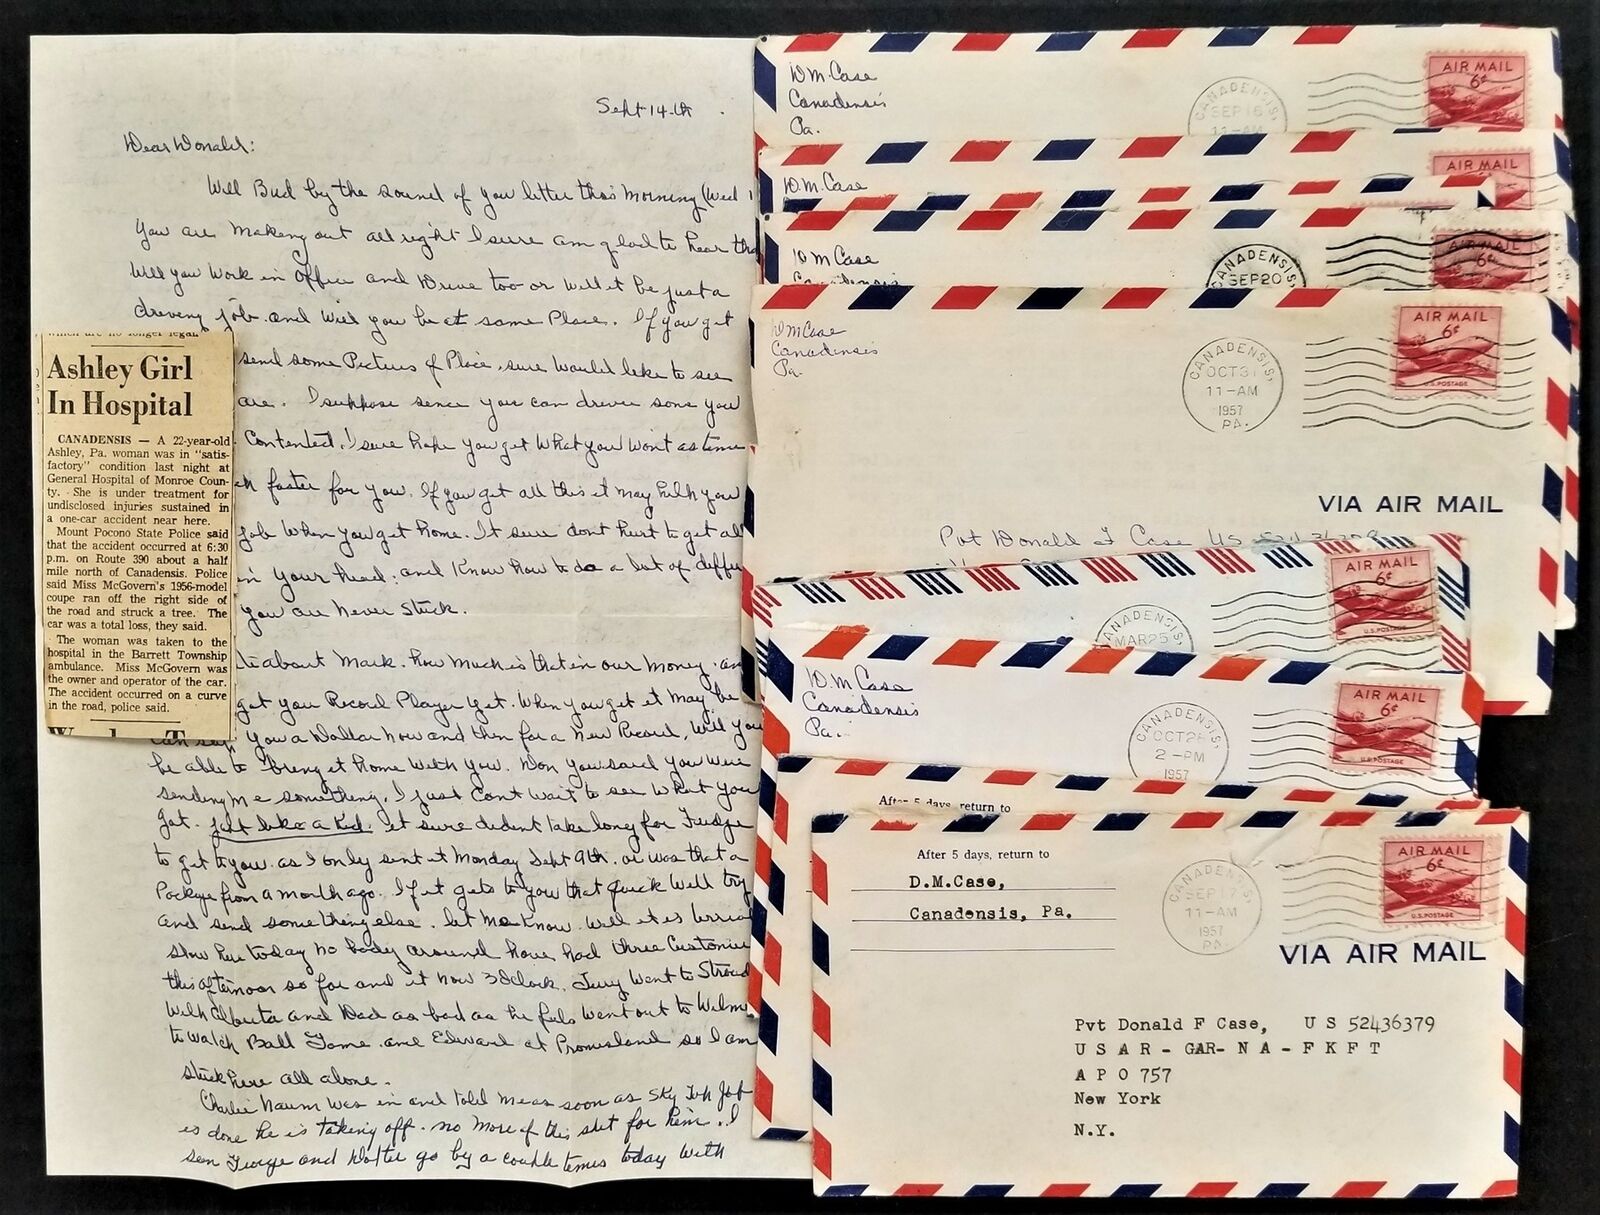 Sept 14th
Dear Donald:
Well Bud by the sound of you letter this morning (Wed
You are makeing out all right I sure am glad to hear tha
Will you work in Office and Drive too or will it be just a
driveing job. and will you be at same Place. If you get
send some Pictures of Place, sure would like to see
are. I suppose sence you can drive some you
Contented. I sure hope you get what you won't as time
faster for you. If you get all this it may help you
job when you get home. It sure dont hurt to get all
in your head; and know how to do a lot of diffe
you are never stuck.
about Mark. how much is that in our money. an
got you Record Player yet. When you get it may be
can you a Dollar now and then for a new Record, Will you
be able to bring it home with you. Don you said you were
sending me something. I just Cont wait to see what you
got. just like a kid. it sure dident take long for Fudge
to get to you. as I only sent it Monday Sept 9th. or was that a
Package from a month ago. If it gets to you that quick will try
and send something else. let me know. Well it is
slow here today no body around have had three Custome
this afternoon so far and it now 3 oClock. Jerry went to Stroud
with Alberta and Dad as bad as he feels went out to Wilm
to watch Ball Game. and Edward at Promisland so I am
stuck here all alone.
Charlie Naum was in and told me as soon as Sky Top Job
is done he is taking off. no more of this shit for him. I
seen George and go by a couple times today with
which are no longer legal.
Ashley Girl
In Hospital
CANADENSIS — A 22-year-old
Ashley, Pa. woman was in "satis-
factory" condition last night at
General Hospital of Monroe Coun-
ty. She is under treatment for
undisclosed injuries sustained in
a one-car accident near here.
Mount Pocono State Police said
that the accident occurred at 6:30
p.m. on Route 390 about a half
mile north of Canadensis. Police
said Miss McGovern's 1956-model
coupe ran off the right side of
the road and struck a tree. The
car was a total loss, they said.
The woman was taken to the
hospital in the Barrett Township
ambulance. Miss McGovern was
the owner and operator of the car.
The accident occurred on a curve
in the road, police said.
D M. Case
Canadensis
Pa.
CANADENSIS,
SEP 16
11-AM
AIR MAIL
6¢
D. M. Case
AIR MAIL
D M Case
Canadensis
CANADENSIS,
SEP 20
AIR MAIL
6¢
D M Case
Canadensis
Pa.
CANADENSIS,
OCT 31
11-AM
1957
PA.
AIR MAIL
6¢
U.S. POSTAGE
VIA AIR MAIL
Pvt Donald F Case US
CANADENSIS,
MAR 25
AIR MAIL
6¢
U.S. POSTAGE
D. M Case
Canadensis
Pa.
CANADENSIS,
OCT 28
2-PM
1957
AIR MAIL
6¢
U.S. POSTAGE
After 5 days, return to
After 5 days, return to
D.M.Case,
Canadensis, Pa.
CANADENSIS,
SEP 17
11-AM
1957
PA.
AIR MAIL
6¢
U.S. POSTAGE
VIA AIR MAIL
Pvt Donald F Case, US 52436379
U S A R - GAR- N A - F K F T
A P O 757
New York
N.Y.